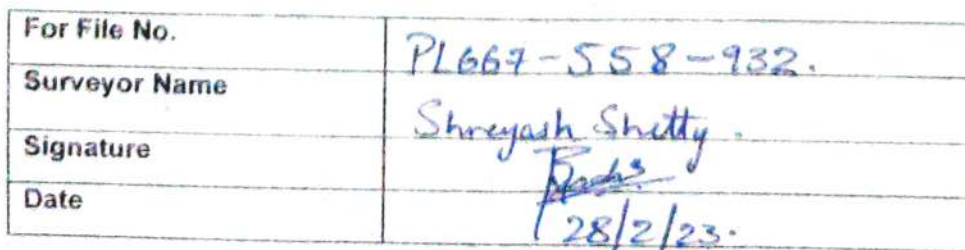 For File No. PL667-558-932.
Surveyor Name Shreyash Shetty.
Signature
Date 28/2/23.